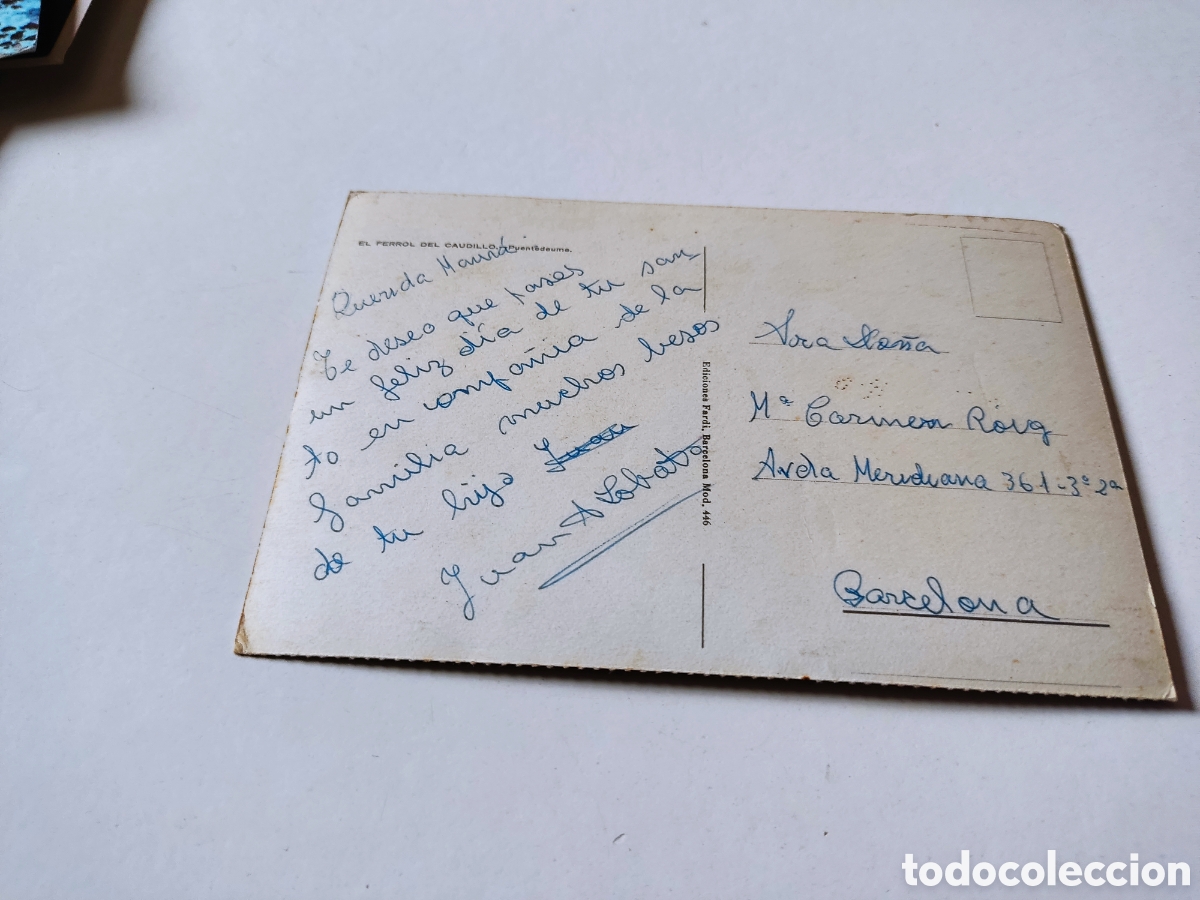 EL FERROL DEL CAUDILLO. Puentedeume.
Querida Mamá
Te deseo que pases
un feliz día de tu san
to en compañia de la
familia muchos besos
de tu hijo Juan
Juan A Lobato
Ediciones Fardi, Barcelona Mod. 446
Sra Doña
Mª Carmen Roig
Avda Meridiana 361-3º 2ª
Barcelona
todocoleccion